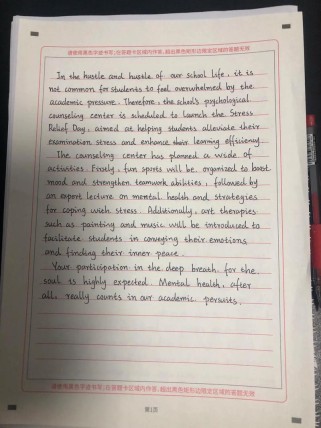 请使用黑色字迹书写;在答题卡区域内作答,超出黑色矩形边框限定区域的答题无效
In the hustle and hustle of our school life, it is
not common for students to feel overwhelmed by the
academic pressure. Therefore, the school's psychological
counseling center is scheduled to launch the Stress
Relief Day, aimed at helping students alleviate their
examination stress and enhance their learning efficiency.
The counseling center has planned a wide of
activities. Firstly, fun sports will be organized to boost
mood and strengthen teamwork abilities, followed by
an expert lecture on mental health and strategies
for coping with stress. Additionally, art therapies
such as painting and music will be introduced to
facilitate students in conveying their emotions
and finding their inner peace.
Your participation in the deep breath for the
soul is highly expected. Mental health, after
all, really counts in our academic persuits.
请使用黑色字迹书写;在答题卡区域内作答,超出黑色矩形边框限定区域的答题无效
第1页